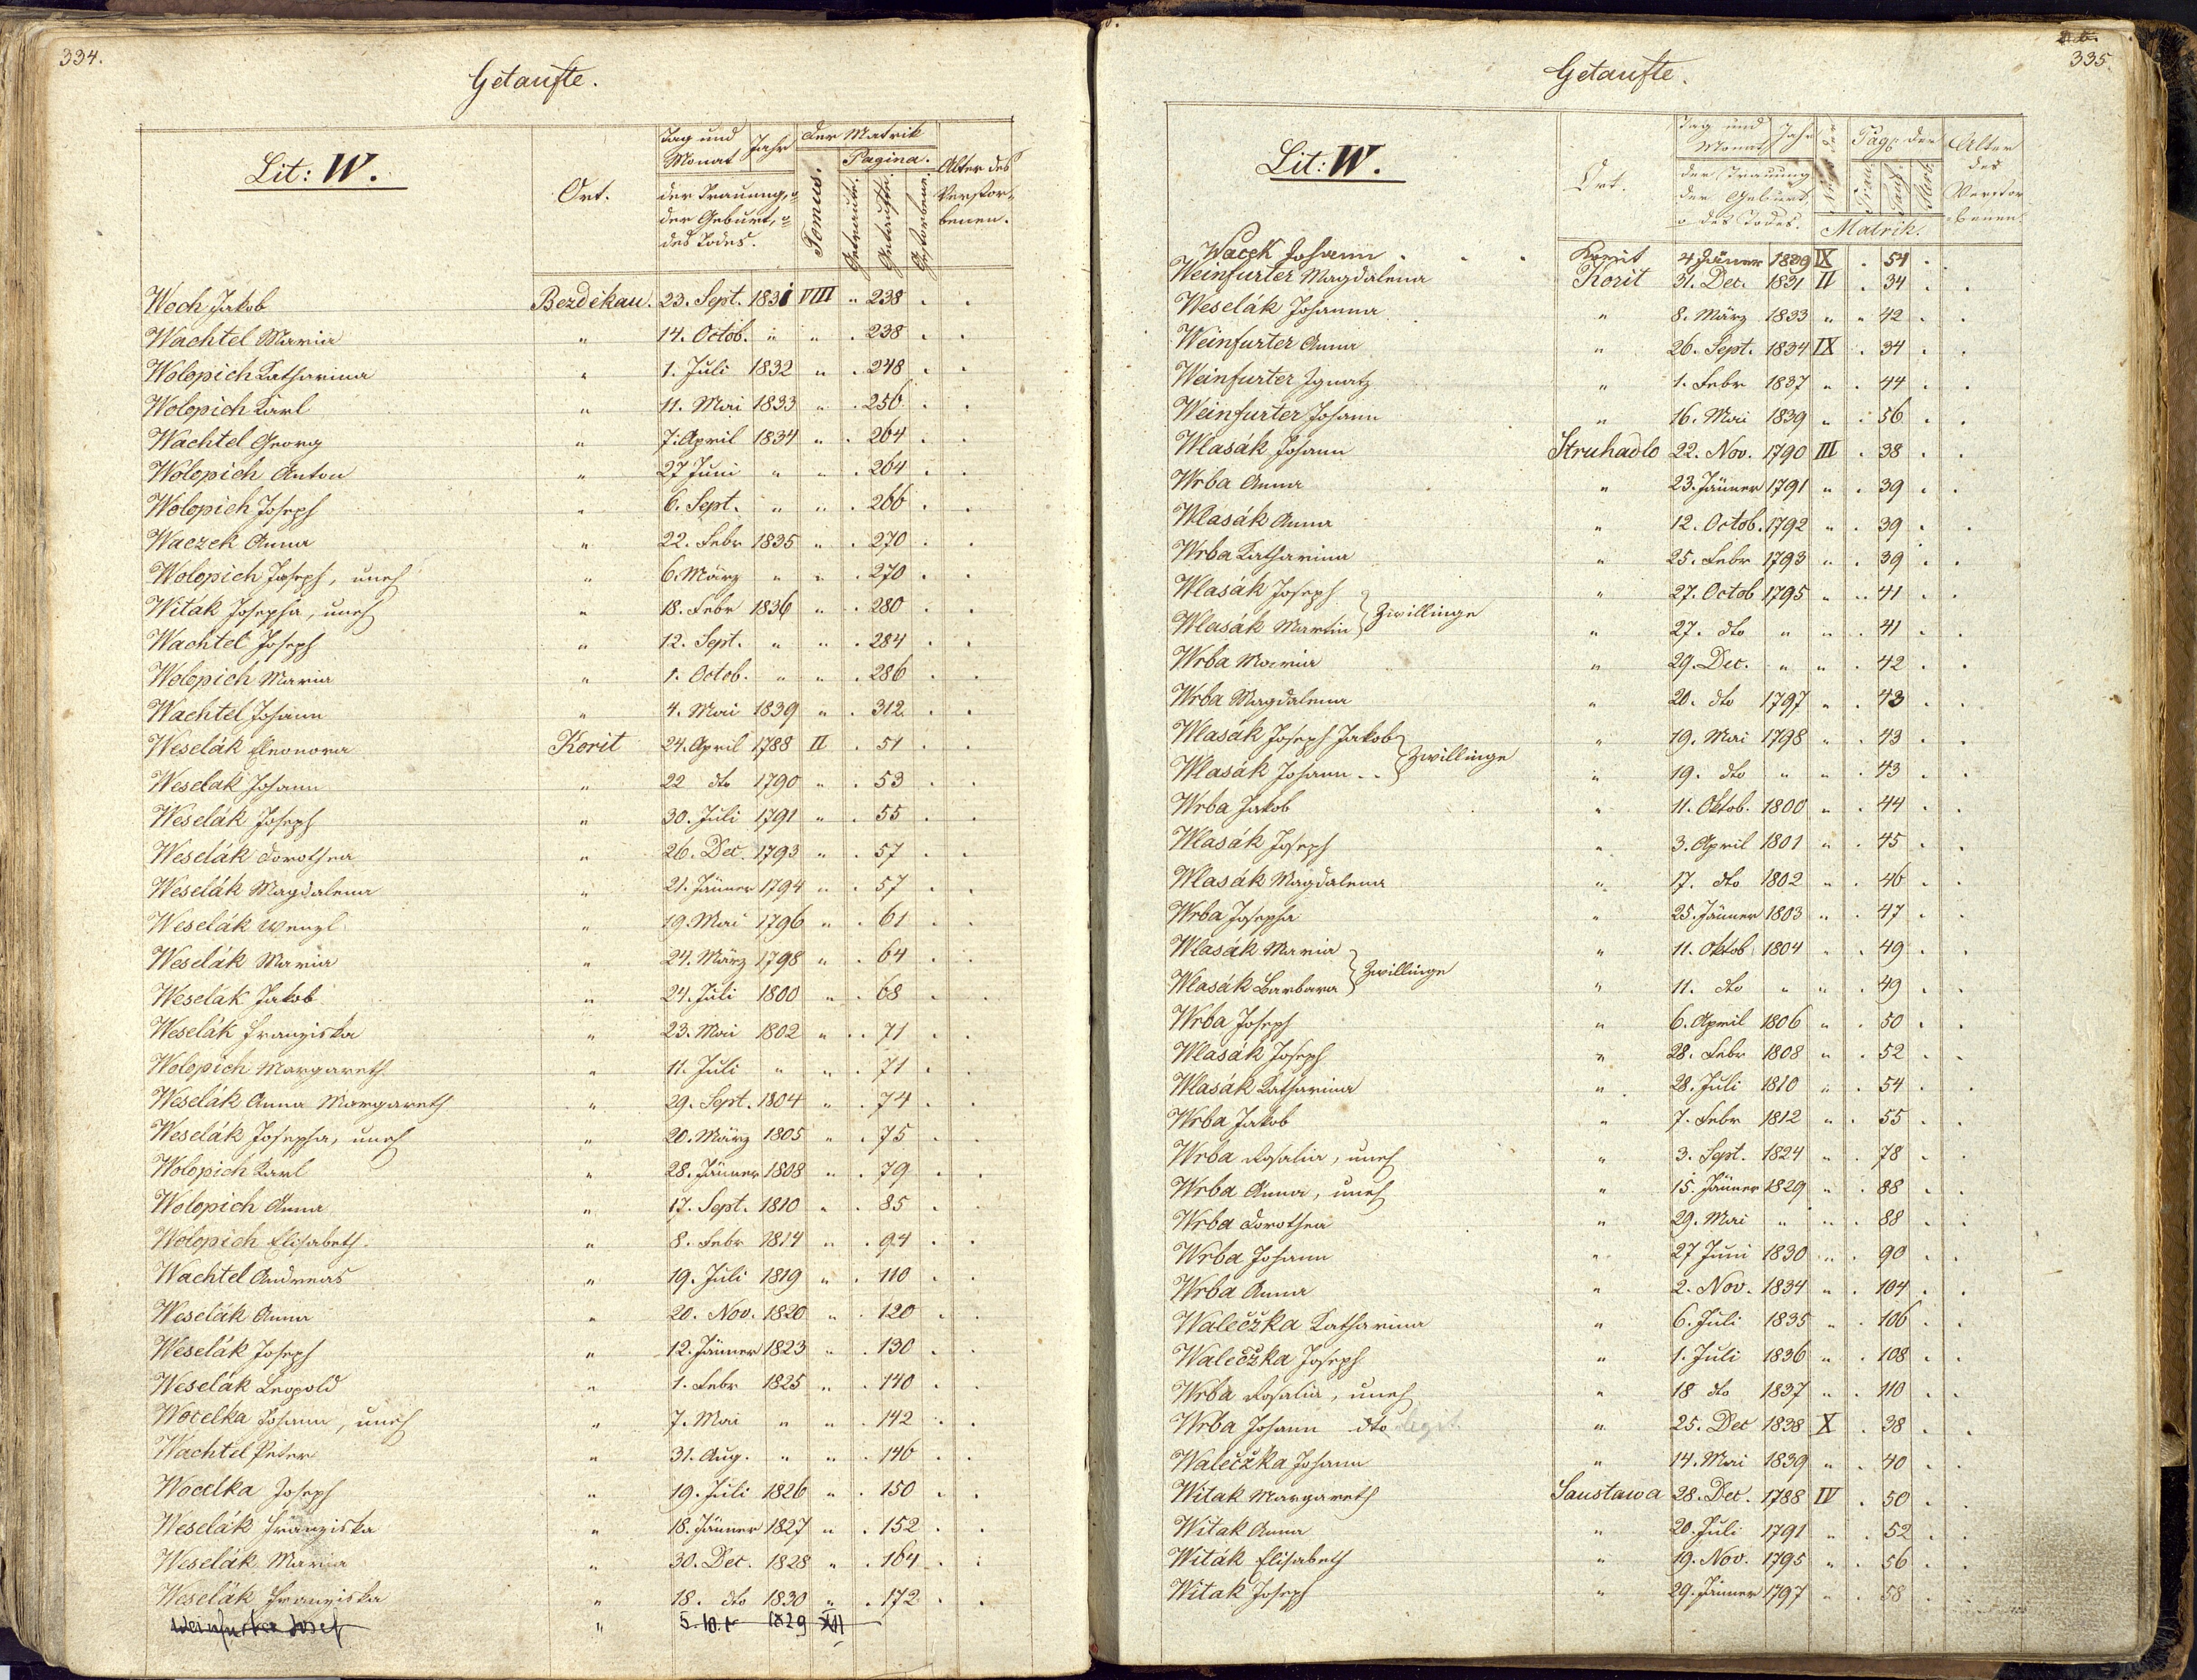 334.
Getaufte.
Lit: W.
Ort.
Tag und Monat Jahr
der Trauung,
der Geburt,
des Todes.
Der Matrik
Tomus.
Pagina.
Getraute.
Getaufte.
Gestorbene.
Alter des Verstor-
benen.
Woch Jakob Bezděkau. 23. Sept. 1831 VIII " 238 . .
Wachtel Maria " 14. Octob. " " . 238 . .
Wolopich Katharina " 1. Juli 1832 " . 248 . .
Wolopich Karl " 11. Mai 1833 " . 256 . .
Wachtel Georg " 7. April 1834 " . 264 . .
Wolopich Anton " 27 Juni " " . 264 . .
Wolopich Joseph " 6. Sept. " " . 266 . .
Waczek Anna " 22. Febr 1835 " . 270 . .
Wolopich Joseph, uneh " 6. März " " . 270 . .
Witák Josepha, uneh " 18. Febr 1836 " . 280 . .
Wachtel Joseph " 12. Sept. " " . 284 . .
Wolopich Maria " 1. Octob. " " . 286 . .
Wachtel Johann " 4. Mai 1839 " . 312 . .
Weselák Eleonora Korit 24. April 1788 II . 51 . .
Weselak Johann " 22 dto 1790 " . 53 . .
Weselák Joseph " 30. Juli 1791 " . 55 . .
Weselák Dorothea " 26. Dec. 1793 " . 57 . .
Weselák Magdalena " 21. Jänner 1794 " . 57 . .
Weselák Wenzl " 19. Mai 1796 " . 61 . .
Weselák Maria " 24. März 1798 " . 64 . .
Weselák Jakob " 24. Juli 1800 " . 68 . .
Weselák Franziska " 23. Mai 1802 " . 71 . .
Wolopich Margareth " 11. Juli " " . 71 . .
Weselák Anna Margareth " 29. Sept. 1804 " . 74 . .
Weselák Josepha, uneh " 20. März 1805 " . 75 . .
Wolopich Karl " 28. Jänner 1808 " . 79 . .
Wolopich Anna " 17. Sept. 1810 " . 85 . .
Wolopich Elisabeth " 8. Febr 1814 " . 94 . .
Wachtel Andreas " 19. Juli 1819 " . 110 . .
Weselák Anna " 20. Nov. 1820 " . 120 . .
Weselák Joseph " 12. Jänner 1823 " . 130 . .
Weselák Leopold " 1. Febr 1825 " . 140 . .
Wocelka Johann, uneh " 7. Mai " " . 142 . .
Wachtel Peter " 31. Aug. " " . 146 . .
Wocelka Joseph " 19. Juli 1826 " . 150 . .
Weselák Franziska " 18. Jänner 1827 " . 152 . .
Weselák Maria " 30. Dec. 1828 " . 164 . .
Weselák Franziska " 18. dto 1830 " . 172 . .
Weinfurter Josef " 5. 10. 1829 XII
335.
Getaufte.
Lit: W.
Ort.
Tag und Monat Jahr
der Trauung
der Geburt,
des Todes.
Pag. der
Trau
Tauf
Sterb
Matrik.
Alter
des
Verstor-
benen.
Wacek Johann . . . Korit 4 Jänner 1809 IX . 54 . .
Weinfurter Magdalena Korit 31. Dec. 1831 II . 34 . .
Weselák Johanna " 8. März 1833 " " 42 . .
Weinfurter Anna " 26. Sept. 1834 IX . 34 . .
Weinfurter Ignatz " 1. Febr 1837 " . 44 . .
Weinfurter Johann " 16. Mai 1839 " . 56 . .
Wlasák Johann Struhadlo 22. Nov. 1790 III . 38 . .
Wrba Anna " 23. Jänner 1791 " . 39 . .
Wlasák Anna " 12. Octob. 1792 " . 39 . .
Wrba Katharina " 25. Febr 1793 " . 39 . .
Wlasák Joseph " 27. Octob 1795 " . 41 . .
Zwillinge
Wlasák Martin " 27. dto " " . 41 . .
Wrba Maria " 29. Dec. " " . 42 . .
Wrba Magdalena " 20. dto 1797 " . 43 . .
Wlasák Joseph Jakob " 19. Mai 1798 " . 43 . .
Zwillinge
Wlasák Johann . . " 19. dto " " . 43 . .
Wrba Jakob " 11. Oktob. 1800 " . 44 . .
Wlasák Joseph " 3. April 1801 " . 45 . .
Wlasák Magdalena " 17. dto 1802 " . 46 . .
Wrba Josepha " 25. Jänner 1803 " . 47 . .
Wlasák Maria " 11. Oktob 1804 " . 49 . .
Zwillinge
Wlasák Barbara " 11. dto " " . 49 . .
Wrba Joseph " 6. April 1806 " . 50 . .
Wlasák Joseph " 28. Febr 1808 " . 52 . .
Wlasák Katharina " 28. Juli 1810 " . 54 . .
Wrba Jakob " 7. Febr 1812 " . 55 . .
Wrba Rosalia, uneh " 3. Sept. 1824 " . 78 . .
Wrba Anna, uneh " 15. Jänner 1829 " . 88 . .
Wrba Dorothea " 29. Mai " " . 88 . .
Wrba Johann " 27 Juni 1830 " . 90 . .
Wrba Anna " 2. Nov. 1834 " . 104 . .
Walečzka Katharina " 6. Juli 1835 " . 106 . .
Walečzka Joseph " 1. Juli 1836 " . 108 . .
Wrba Rosalia, uneh " 18 dto 1837 " . 110 . .
Wrba Johann dto legit. " 25. Dec 1838 X . 38 . .
Walečzka Johann " 14. Mai 1839 " . 40 . .
Witak Margareth Saustawa 28. Dec. 1788 IV . 50 . .
Witak Anna " 20. Juli 1791 " . 52 . .
Witák Elisabeth " 19. Nov. 1795 " . 56 . .
Witak Joseph " 29. Jänner 1797 " . 58 . .